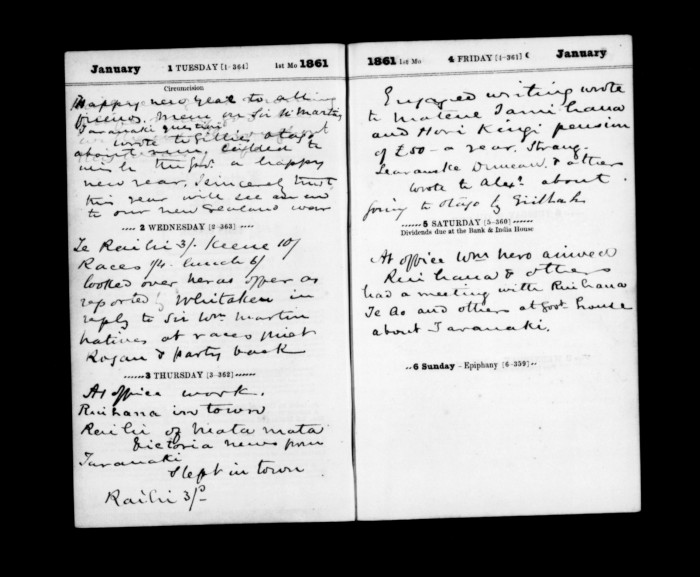 January 1 TUESDAY [1-364] 1st Mo 1861
Circumcision
Happy new year to all my
friends. Mem on Sir W Martin
Taranaki question
wrote to Gillies Otago
about run, called to
wish the Gov. a happy
new year, sincerely trust
this year will see an end
to our new Zealand war
2 WEDNESDAY [2-363]
Te Raihi 3/- Keene 10/
Races lunch 6/
looked over news as
reported by Whitaker in
reply to Sir Wm Martin
natives at races
Rogan & party back
3 THURSDAY [3-362]
At office work.
Reihana in town
Raihi of Mata Mata
Victoria news from
Taranaki
Slept in town
Raihi 3/-
1861 1st Mo 4 FRIDAY [4-361] January
Engaged writing wrote
to Matene Tamihana
and Hori Kingi pension
of £50 - a year. Strang.
Duncan & others
wrote to Alexr about
going to Otago by
5 SATURDAY [5-360]
Dividends due at the Bank & India House
At office Wm hero arrived
Reihana & others
had a meeting with Reihana
Te Ao and others at Govt house
about Taranaki.
6 Sunday - Epiphany [6-359]